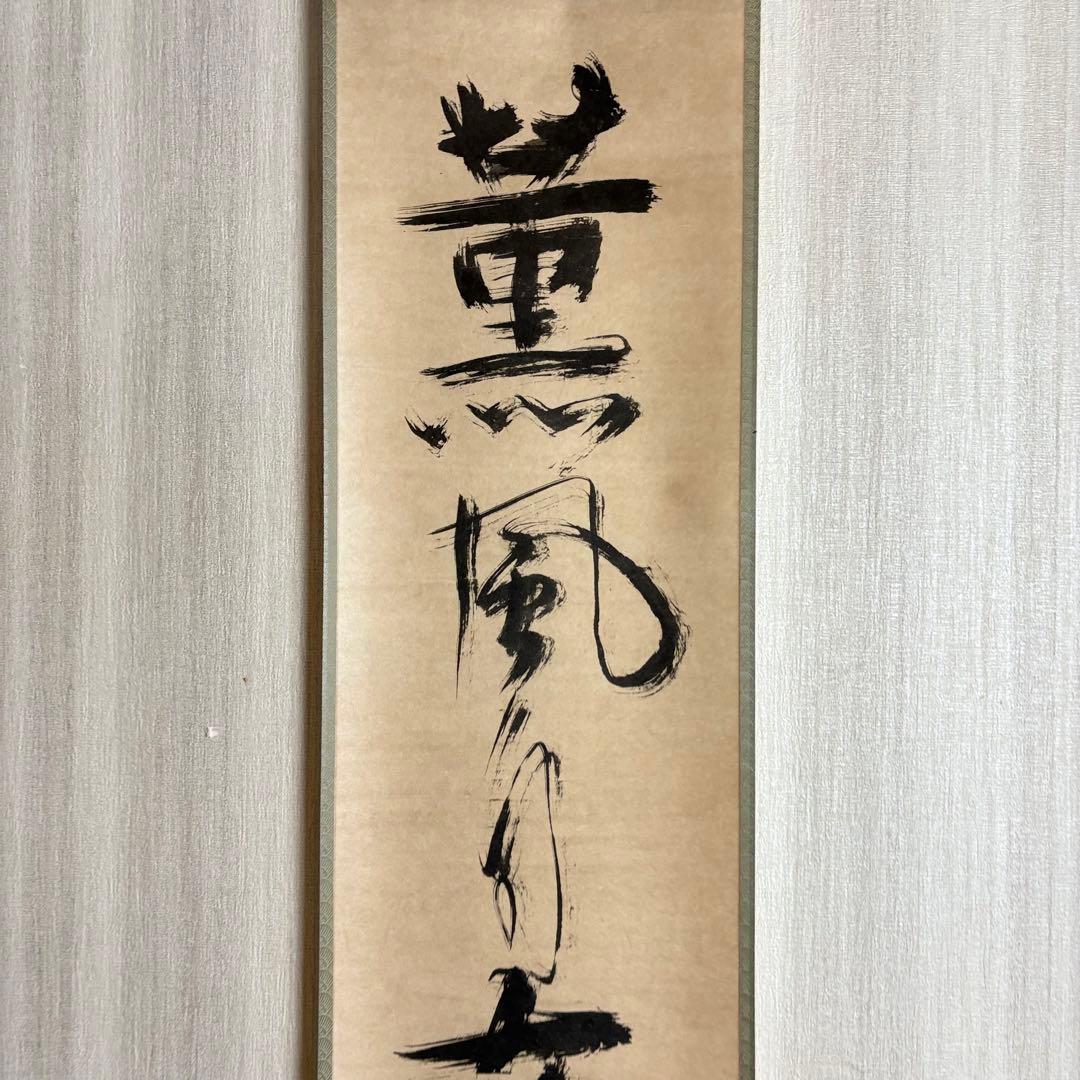 薫風自